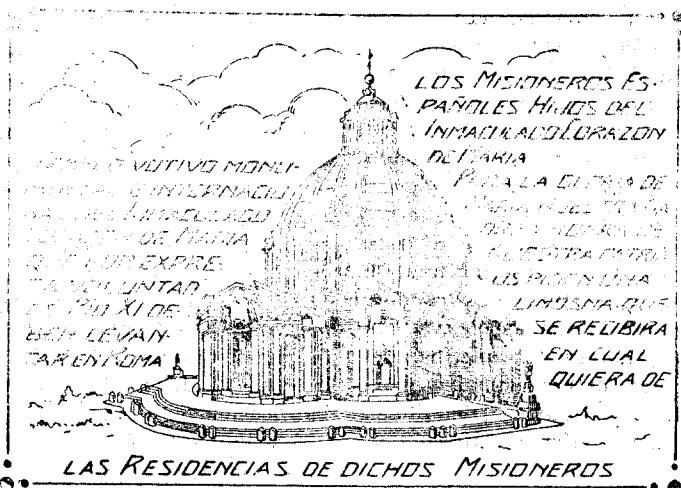 VOTIVO MONU-
E INTERNACIO
DEL INMACULADO
DE MARIA
QUE POR EXPRE-
VOLUNTAD
PIO XI DE-
BEN LEVAN-
TAR EN ROMA
LOS MISIONEROS ES-
PAÑOLES HIJOS DEL
INMACULADO CORAZON
DE MARIA
PARA LA GLORIA DE
MARIA
NUESTRA PATRIA
OS PIDEN UNA
LIMOSNA QUE
SE RECIBIRA
EN CUAL
QUIERA DE
LAS RESIDENCIAS DE DICHOS MISIONEROS